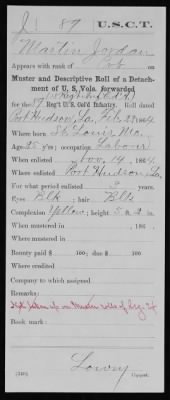 J 89 U.S.C.T.
Martin Jordan
Appears with rank of Pvt on
Muster and Descriptive Roll of a Detach-
ment of U. S. Vols. forwarded
for the 89 Reg't U.S. Col'd Infantry. Roll dated
Port Hudson, La, Feb 28, 1864
Where born St. Louis Mo.
Age 25 y'rs; occupation Labour
When enlisted Nov. 14, 1864.
Where enlisted Port Hudson, La.
For what period enlisted 3 years.
Eyes Blk ; hair Blk
Complexion Yellow; height 5 ft. 2 in.
When mustered in , 186 .
Where mustered in
Bounty paid $ 100; due $ 100
Where credited
Company to which assigned
Remarks:
Not taken up on Muster rolls of Reg't
Book mark:
Lowry
(339) Copyist.